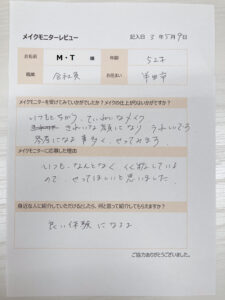 メイクモニターレビュー 記入日 3年5月9日
お名前 M・T 様 年齢 52才
職業 会社員 お住まい 半田市
メイクモニターを受けてみていかがでしたか？メイクの仕上がりはいかがですか？
いつもとちがう、ていねいなメイク
きれいな顔になり うれしいです
参考になる事多く、やってみます
メイクモニターに応募した理由
いつも、なんとなく メイクしている
ので、やってほしいと思いました
身近な人に紹介していただけるとしたら、何と言って紹介してもらえますか？
良い体験になるよ
ご協力ありがとうございました。